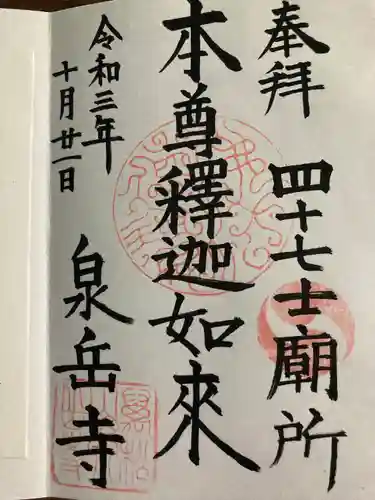 奉拝 四十七士廟所
本尊釋迦如來
泉岳寺
令和三年
十月廿一日